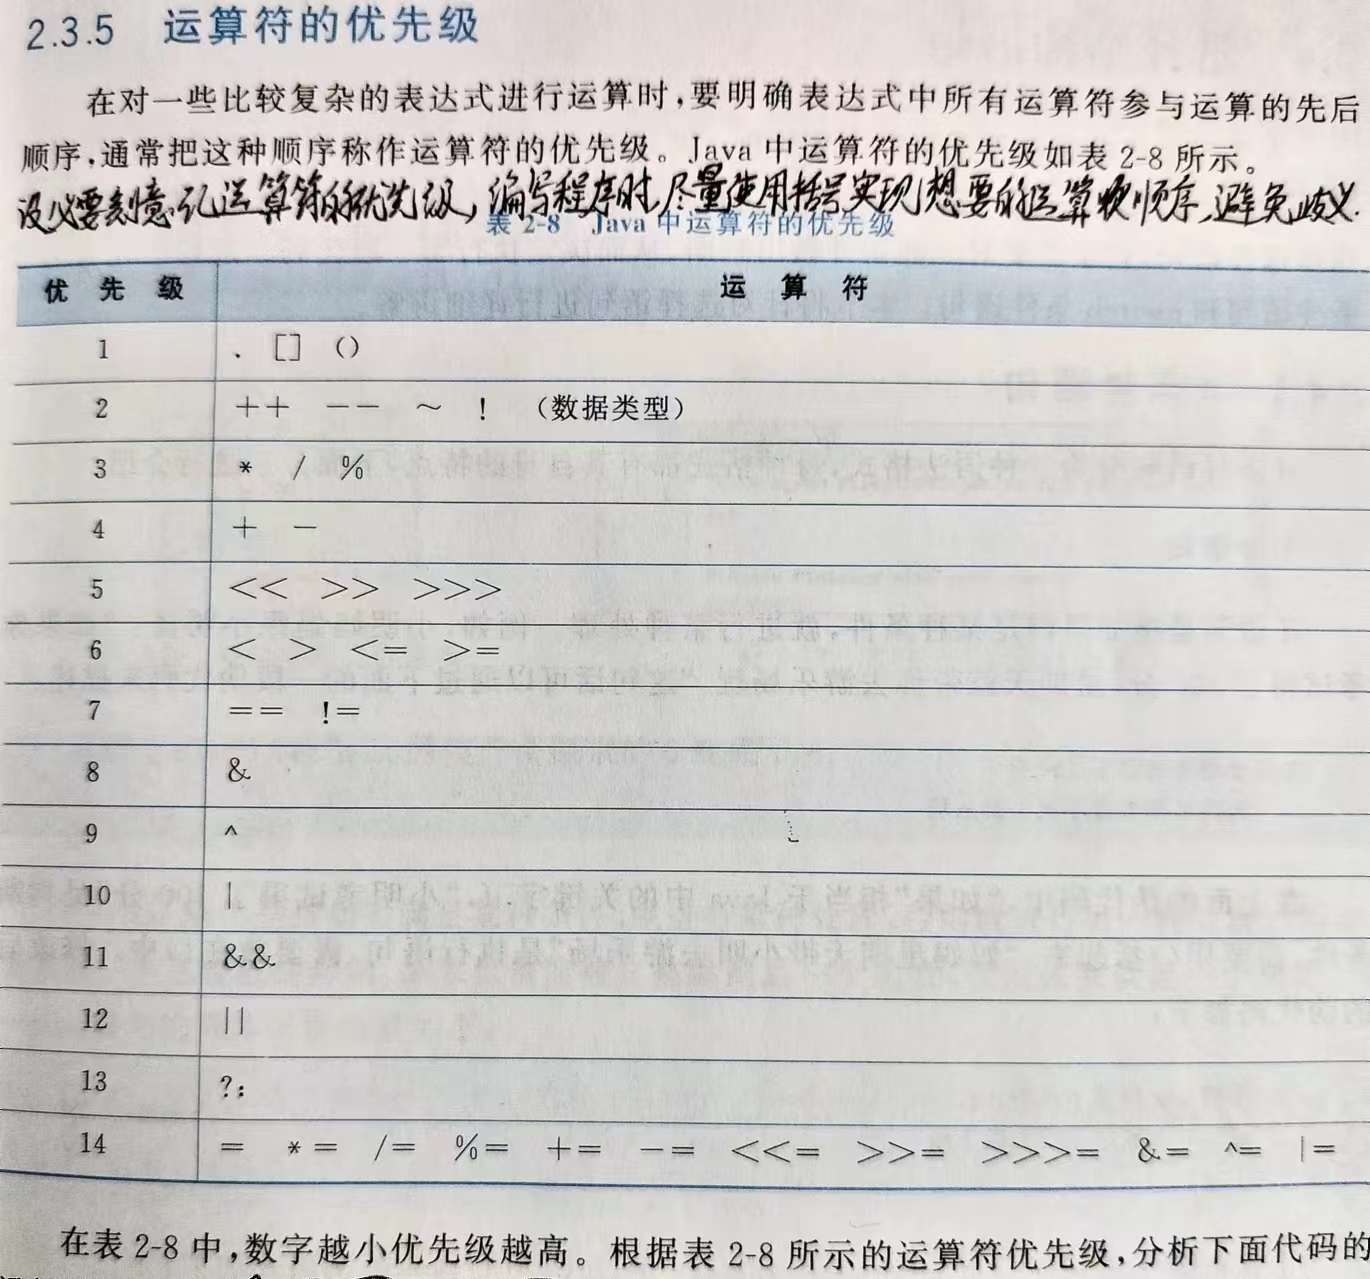 2.3.5 运算符的优先级
在对一些比较复杂的表达式进行运算时,要明确表达式中所有运算符参与运算的先后
顺序,通常把这种顺序称作运算符的优先级。Java 中运算符的优先级如表 2-8 所示。
没必要刻意记运算符的优先级,编写程序时,尽量使用括号实现想要的运算顺序,避免歧义.
表 2-8 Java 中运算符的优先级
优先级 运算符
1 . [] ()
2 ++ -- ~ ! (数据类型)
3 * / %
4 + -
5 << >> >>>
6 < > <= >=
7 == !=
8 &
9 ^
10 |
11 &&
12 ||
13 ?:
14 = *= /= %= += -= <<= >>= >>>= &= ^= |=
在表 2-8 中,数字越小优先级越高。根据表 2-8 所示的运算符优先级,分析下面代码的